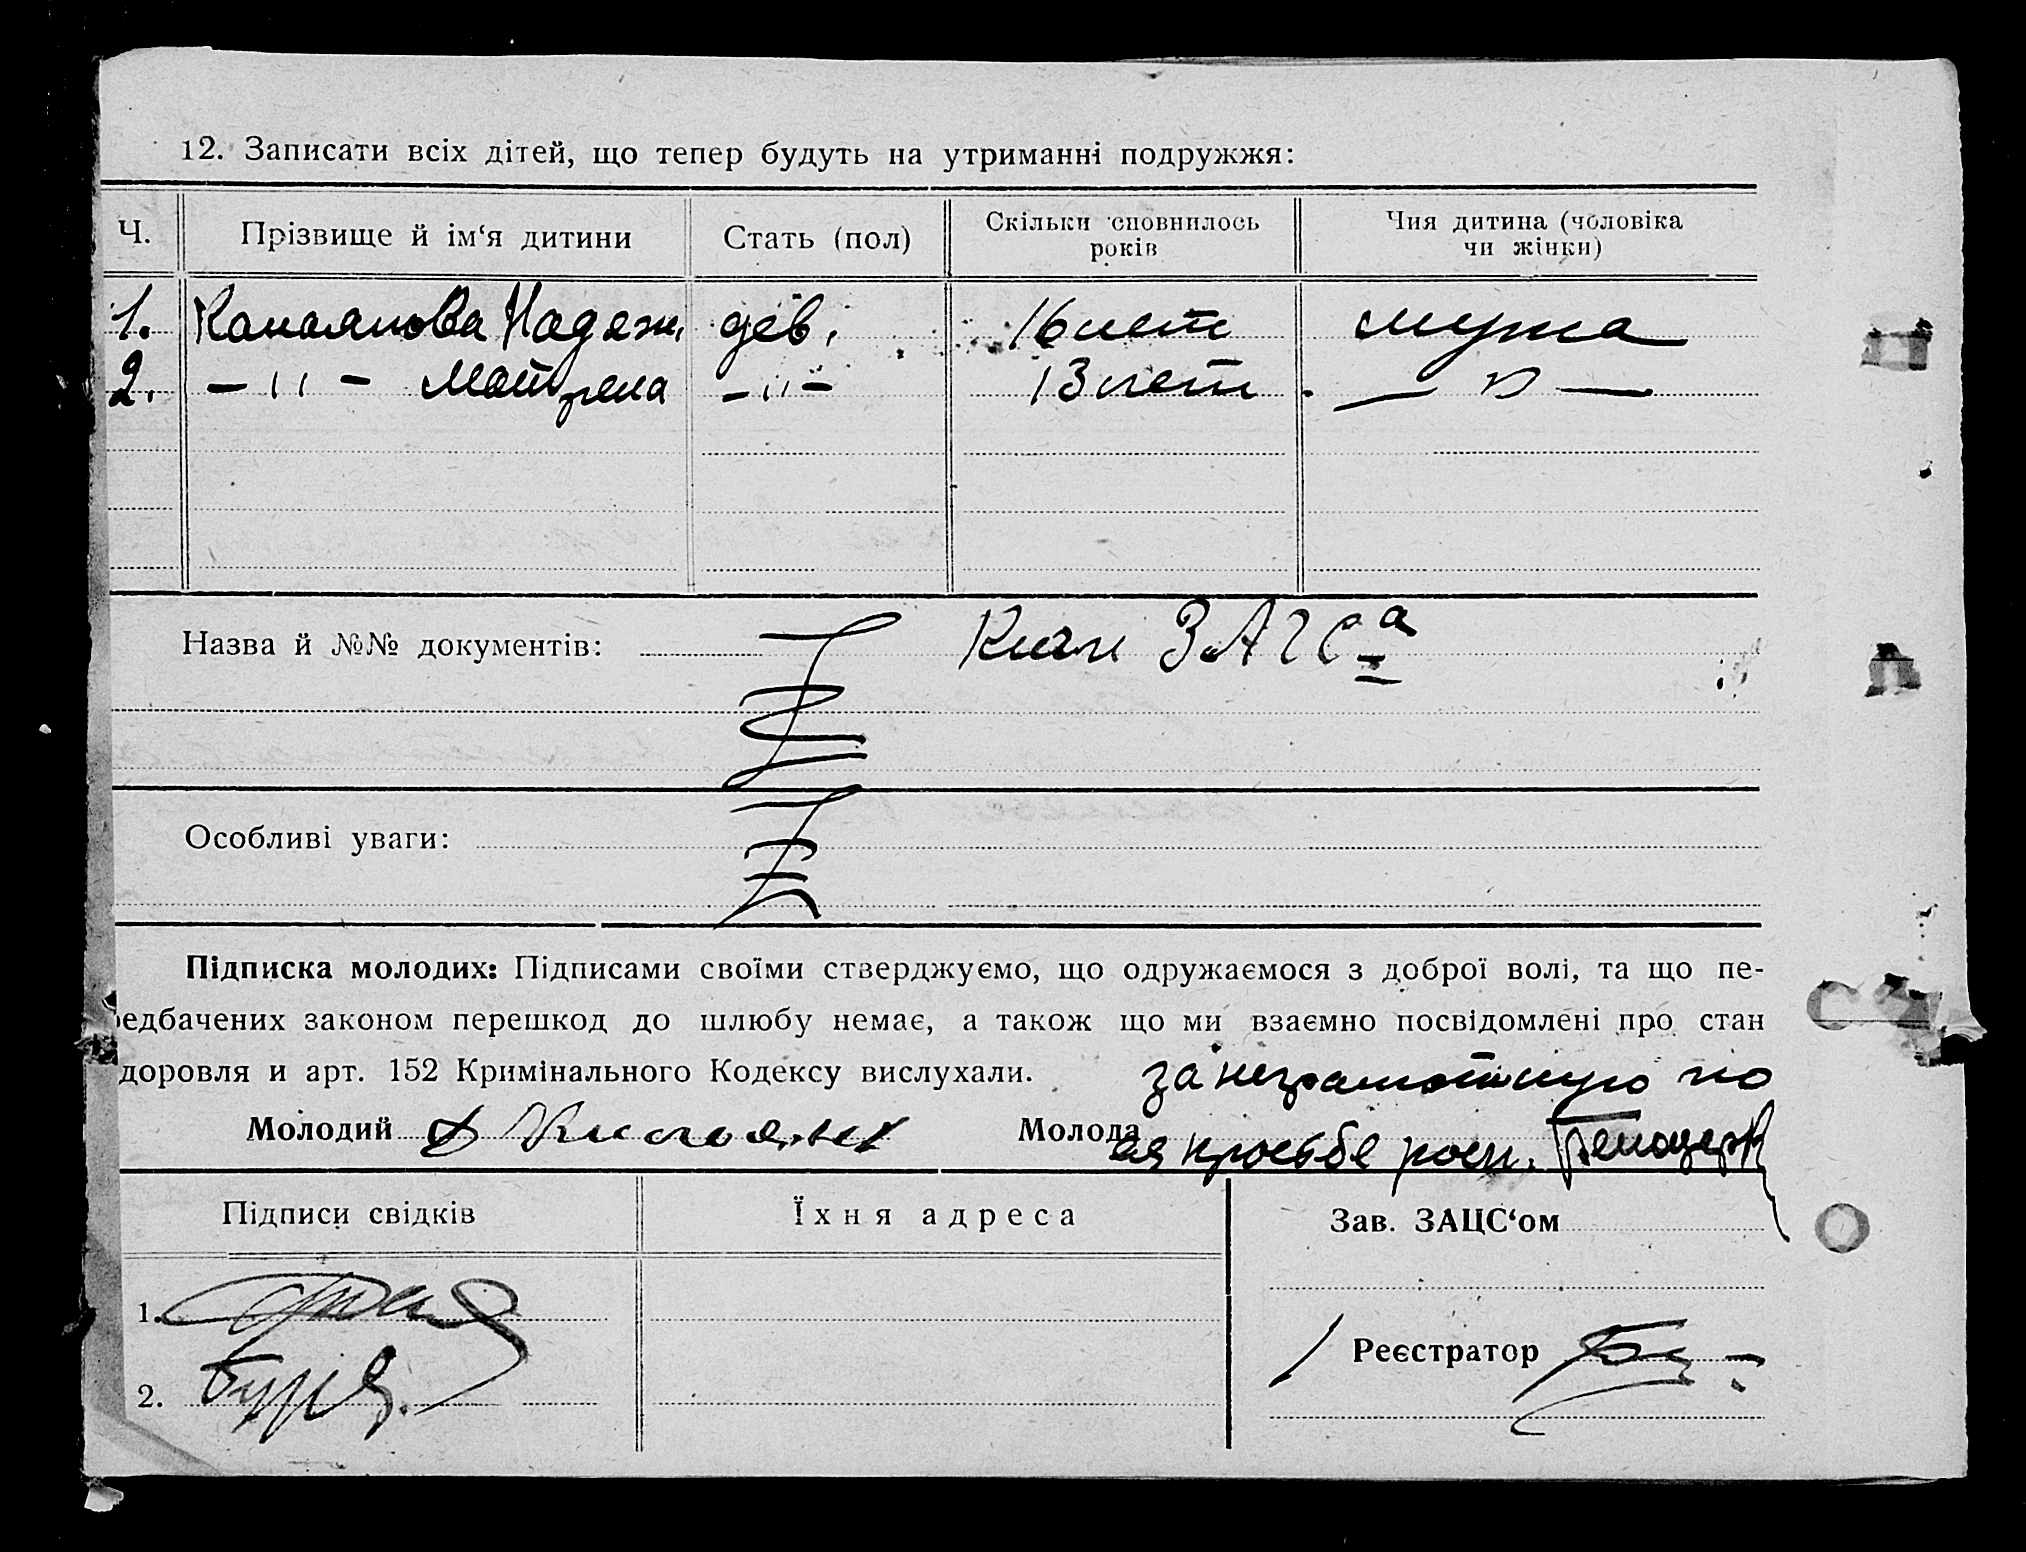 12. Записати всіх дітей, що тепер будуть на утриманні подружжя:
Ч. Прізвище й ім‘я дитини Стать (пол) Скільки сповнилось років Чия дитина (чоловіка чи жінки)
1. Надеж. дев. 16 лет мужа
2. — 〃 — Матрена — 〃 — 13 лет — 〃 —
Назва й №№ документів: Книги ЗАГСа
Особливі уваги:
Підписка молодих: Підписами своїми стверджуємо, що одружаємося з доброї волі, та що пе-
редбачених законом перешкод до шлюбу немає, а також що ми взаємно посвідомлені про стан
доровля и арт. 152 Кримінального Кодексу вислухали.
за неграмотную по
Молодий Молода ея просьбе росп.
Підписи свідків Їхня адреса Зав. ЗАЦС‘ом
1.
Реєстратор
2.